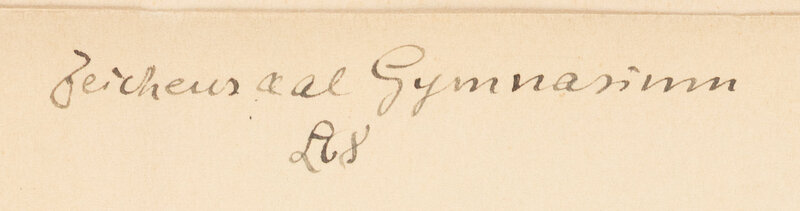 Zeichensaal Gymnasium